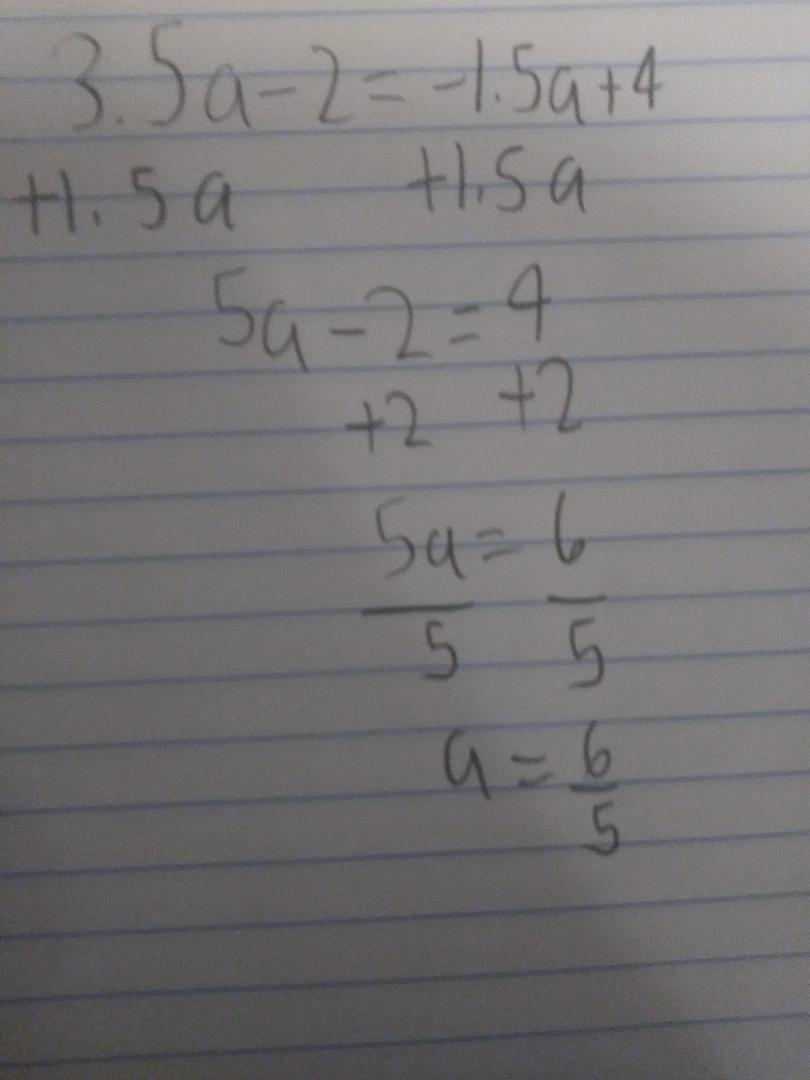 3.5a-2=-1.5a+4
+1.5a +1.5a
5a-2=4
+2 +2
5a=6
5 5
a=6
5